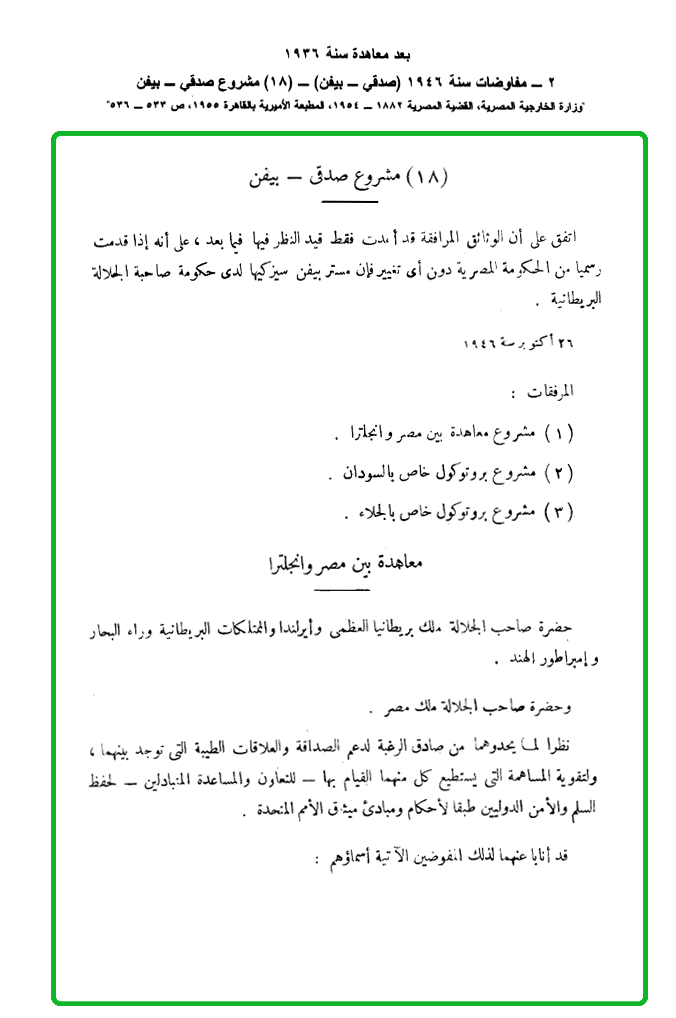 بعد معاهدة سنة ١٩٣٦
٢ ــ مفاوضات سنة ١٩٤٦ (صدقي ــ بيفن) ــ (١٨) مشروع صدقي ــ بيفن
"وزارة الخارجية المصرية، القضية المصرية ١٨٨٢ ــ ١٩٥٤، المطبعة الأميرية بالقاهرة ١٩٥٥، ص ٥٣٣ ــ ٥٣٦"
(١٨) مشروع صدقى – بيفن
اتفق على أن الوثائق المرافقة قد أعدت فقط قيد النظر فيها فيما بعد ، على أنه إذا قدمت
رسميا من الحكومة المصرية دون أى تغيير فإن مستر بيفن سيزكيها لدى حكومة صاحبة الجلالة
البريطانية .
٢٦ أكتوبر سنة ١٩٤٦
المرفقات :
(١) مشروع معاهدة بين مصر وانجلترا .
(٢) مشروع بروتوكول خاص بالسودان .
(٣) مشروع بروتوكول خاص بالجلاء .
معاهدة بين مصر وانجلترا
حضرة صاحب الجلالة ملك بريطانيا العظمى وأيرلندا والممتلكات البريطانية وراء البحار
وإمبراطور الهند .
وحضرة صاحب الجلالة ملك مصر .
نظرا لما يحدوهما من صادق الرغبة لدعم الصداقة والعلاقات الطيبة التى توجد بينهما ،
ولتقوية المساهمة التى يستطيع كل منهما القيام بها – للتعاون والمساعدة المتبادلين – لحفظ
السلم والأمن الدوليين طبقا لأحكام ومبادئ ميثاق الأمم المتحدة .
قد أنابا عنهما لذلك المفوضين الآتية أسماؤهم :